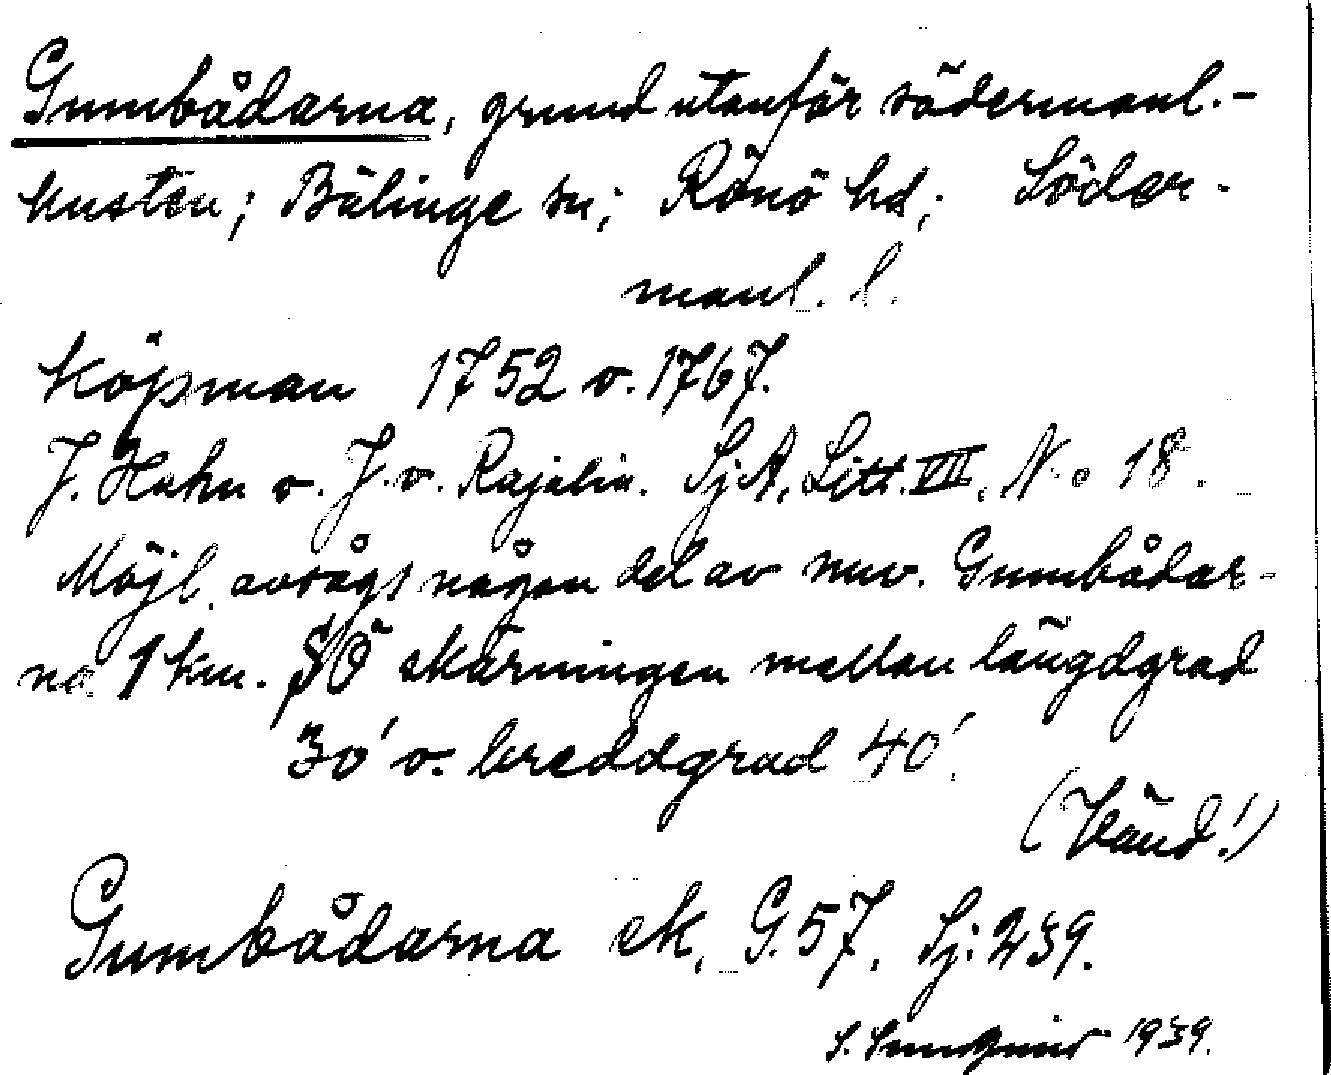 Gumbådarna, grund utanför södermanl.-
kusten; Bälinge sn; Rönö hd; Söder-
manl. l.
Köpman 1752 o. 1767.
J. Hahn o. J. v. Rajalin. SjA, Litt. VIII, No 18.
Möjl. avsågs någon del av nuv. Gumbådar-
na 1 km. SÖ skärningen mellan längdgrad
30′ o. breddgrad 40′.
(Vänd!)
Gumbådarna ek. G.57, Sj: 239.
S. 1939.